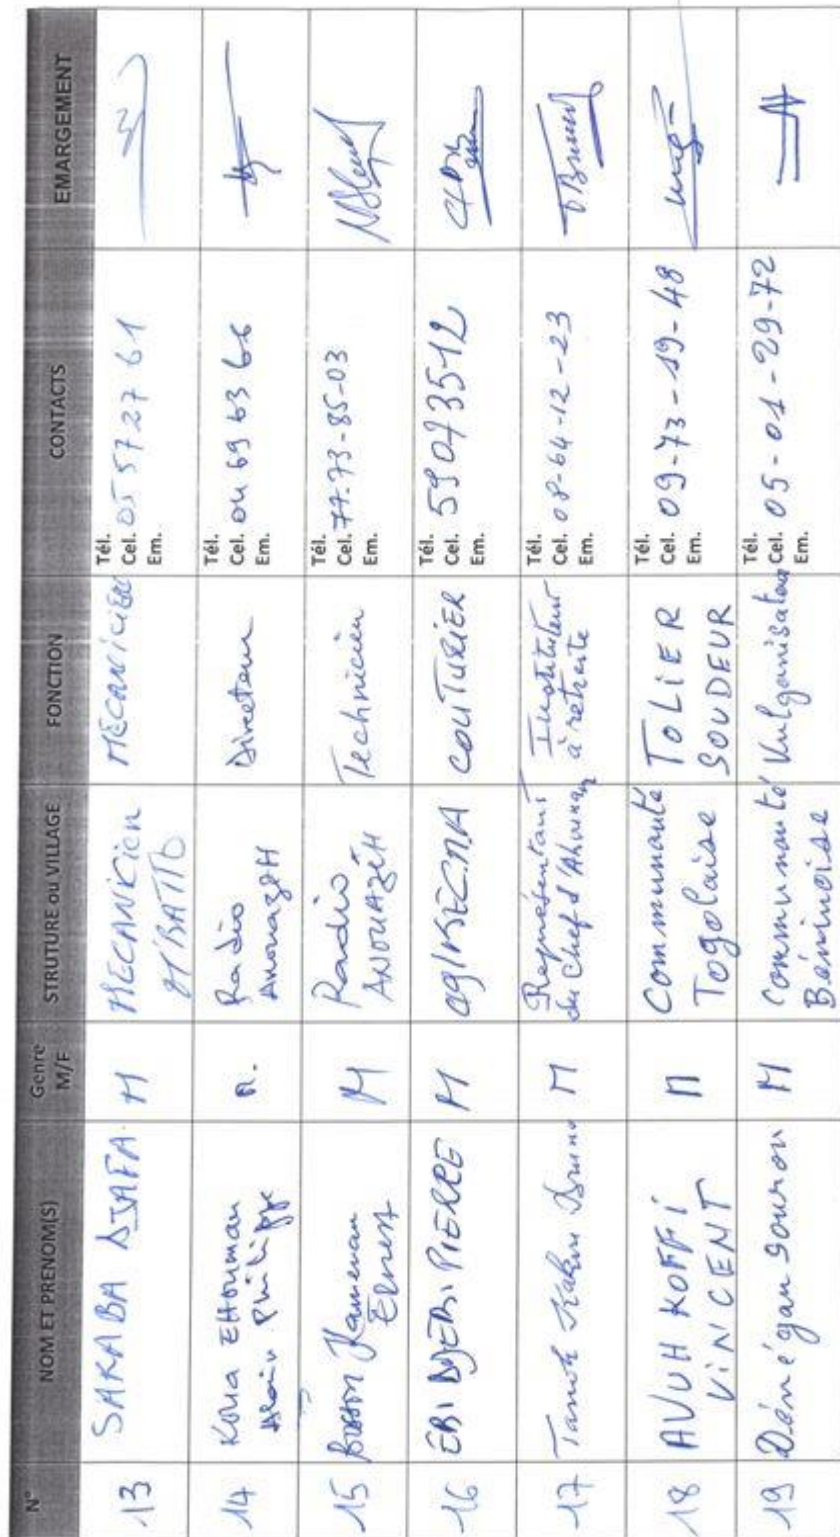 N° NOM ET PRENOM(S) Genre M/F STRUTURE ou VILLAGE FONCTION CONTACTS EMARGEMENT
13 SARABA DJAFA M MECANICien M'BATTO MECANICIEN Tél. Cel. 05 57 27 61 Em.
14 Koua EHouman Alain Philippe M. Radio AnouazEH Directeur Tél. Cel. 04 69 63 66 Em.
15 Bosson Kamenan Ernest M Radio ANOUAZEH Technicien Tél. Cel. 77-73-85-03 Em.
16 EBI DJEBI PIERRE M COUTURIER Tél. Cel. 59073512 Em.
17 Tanoh Kakou Bruno M Représentant du Chef d' Instituteur à retraite Tél. Cel. 08-64-12-23 Em.
18 AVUH KOFFI VINCENT M Communauté Togolaise TOLIER SOUDEUR Tél. Cel. 09-73-19-48 Em.
19 Dénégan Sourou M Communauté Béninoise Vulganisateur Tél. Cel. 05-01-29-72 Em.